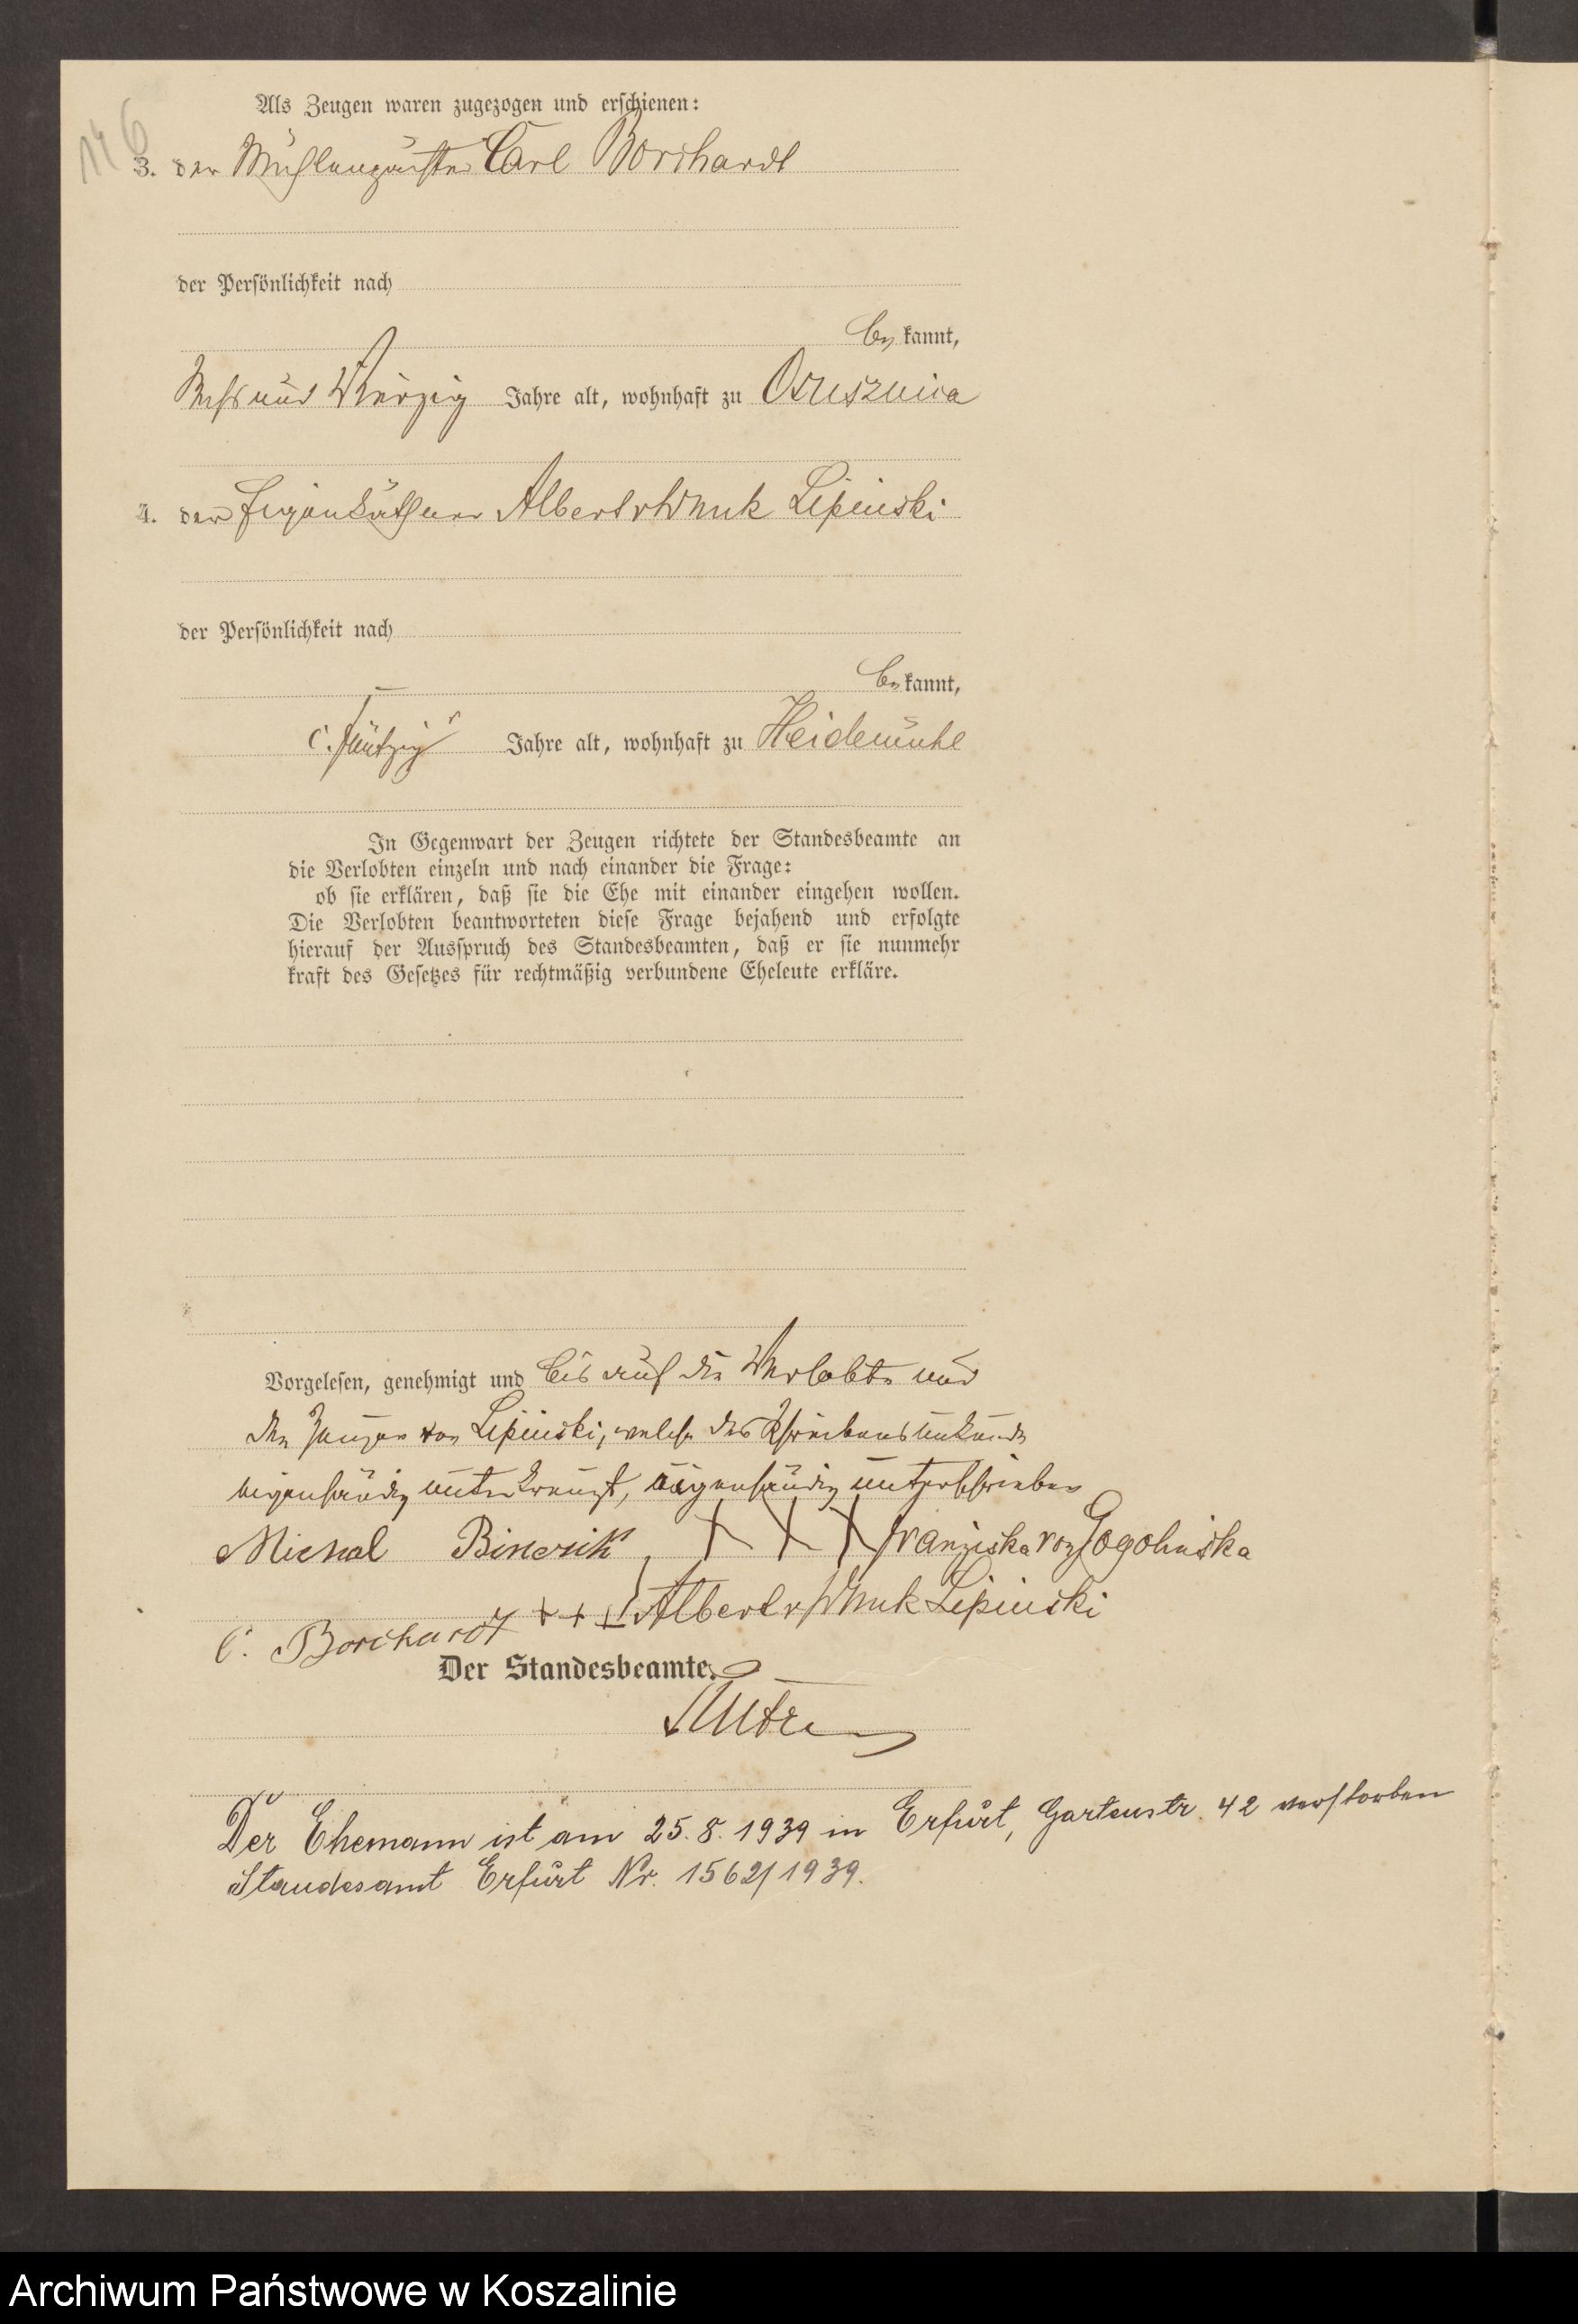 146
Als Zeugen waren zugezogen und erschienen:
3. der Mühlenpächter Carl Borchardt
der Persönlichkeit nach
be kannt,
Sechs und Vierzig Jahre alt, wohnhaft zu Osusznica
4. der Eigenkäthner Albert v Wnuk Lipinski
der Persönlichkeit nach
be kannt,
c. fünfzig Jahre alt, wohnhaft zu Heidemühl
In Gegenwart der Zeugen richtete der Standesbeamte an
die Verlobten einzeln und nach einander die Frage:
ob sie erklären, daß sie die Ehe mit einander eingehen wollen.
Die Verlobten beantworteten diese Frage bejahend und erfolgte
hierauf der Ausspruch des Standesbeamten, daß er sie nunmehr
kraft des Gesetzes für rechtmäßig verbundene Eheleute erkläre.
Vorgelesen, genehmigt und bis auf die Verlobte und
den Zeugen von Lipinski, welche des Schreibens unkundig
eigenhändig unterkreuzt, eigenhändig unterschrieben
Michal +++ Franziska von Gogolinska
C. Borchardt +++ Albert v Wnuk Lipinski
Der Standesbeamte.
Der Ehemann ist am 25. 8. 1939 in Erfurt, Gartenstr. 42 verstorben
Standesamt Erfurt Nr. 1562/1939.
Archiwum Państwowe w Koszalinie